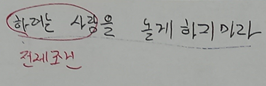 하려는 사람을 놀게 하지마라
전제조건